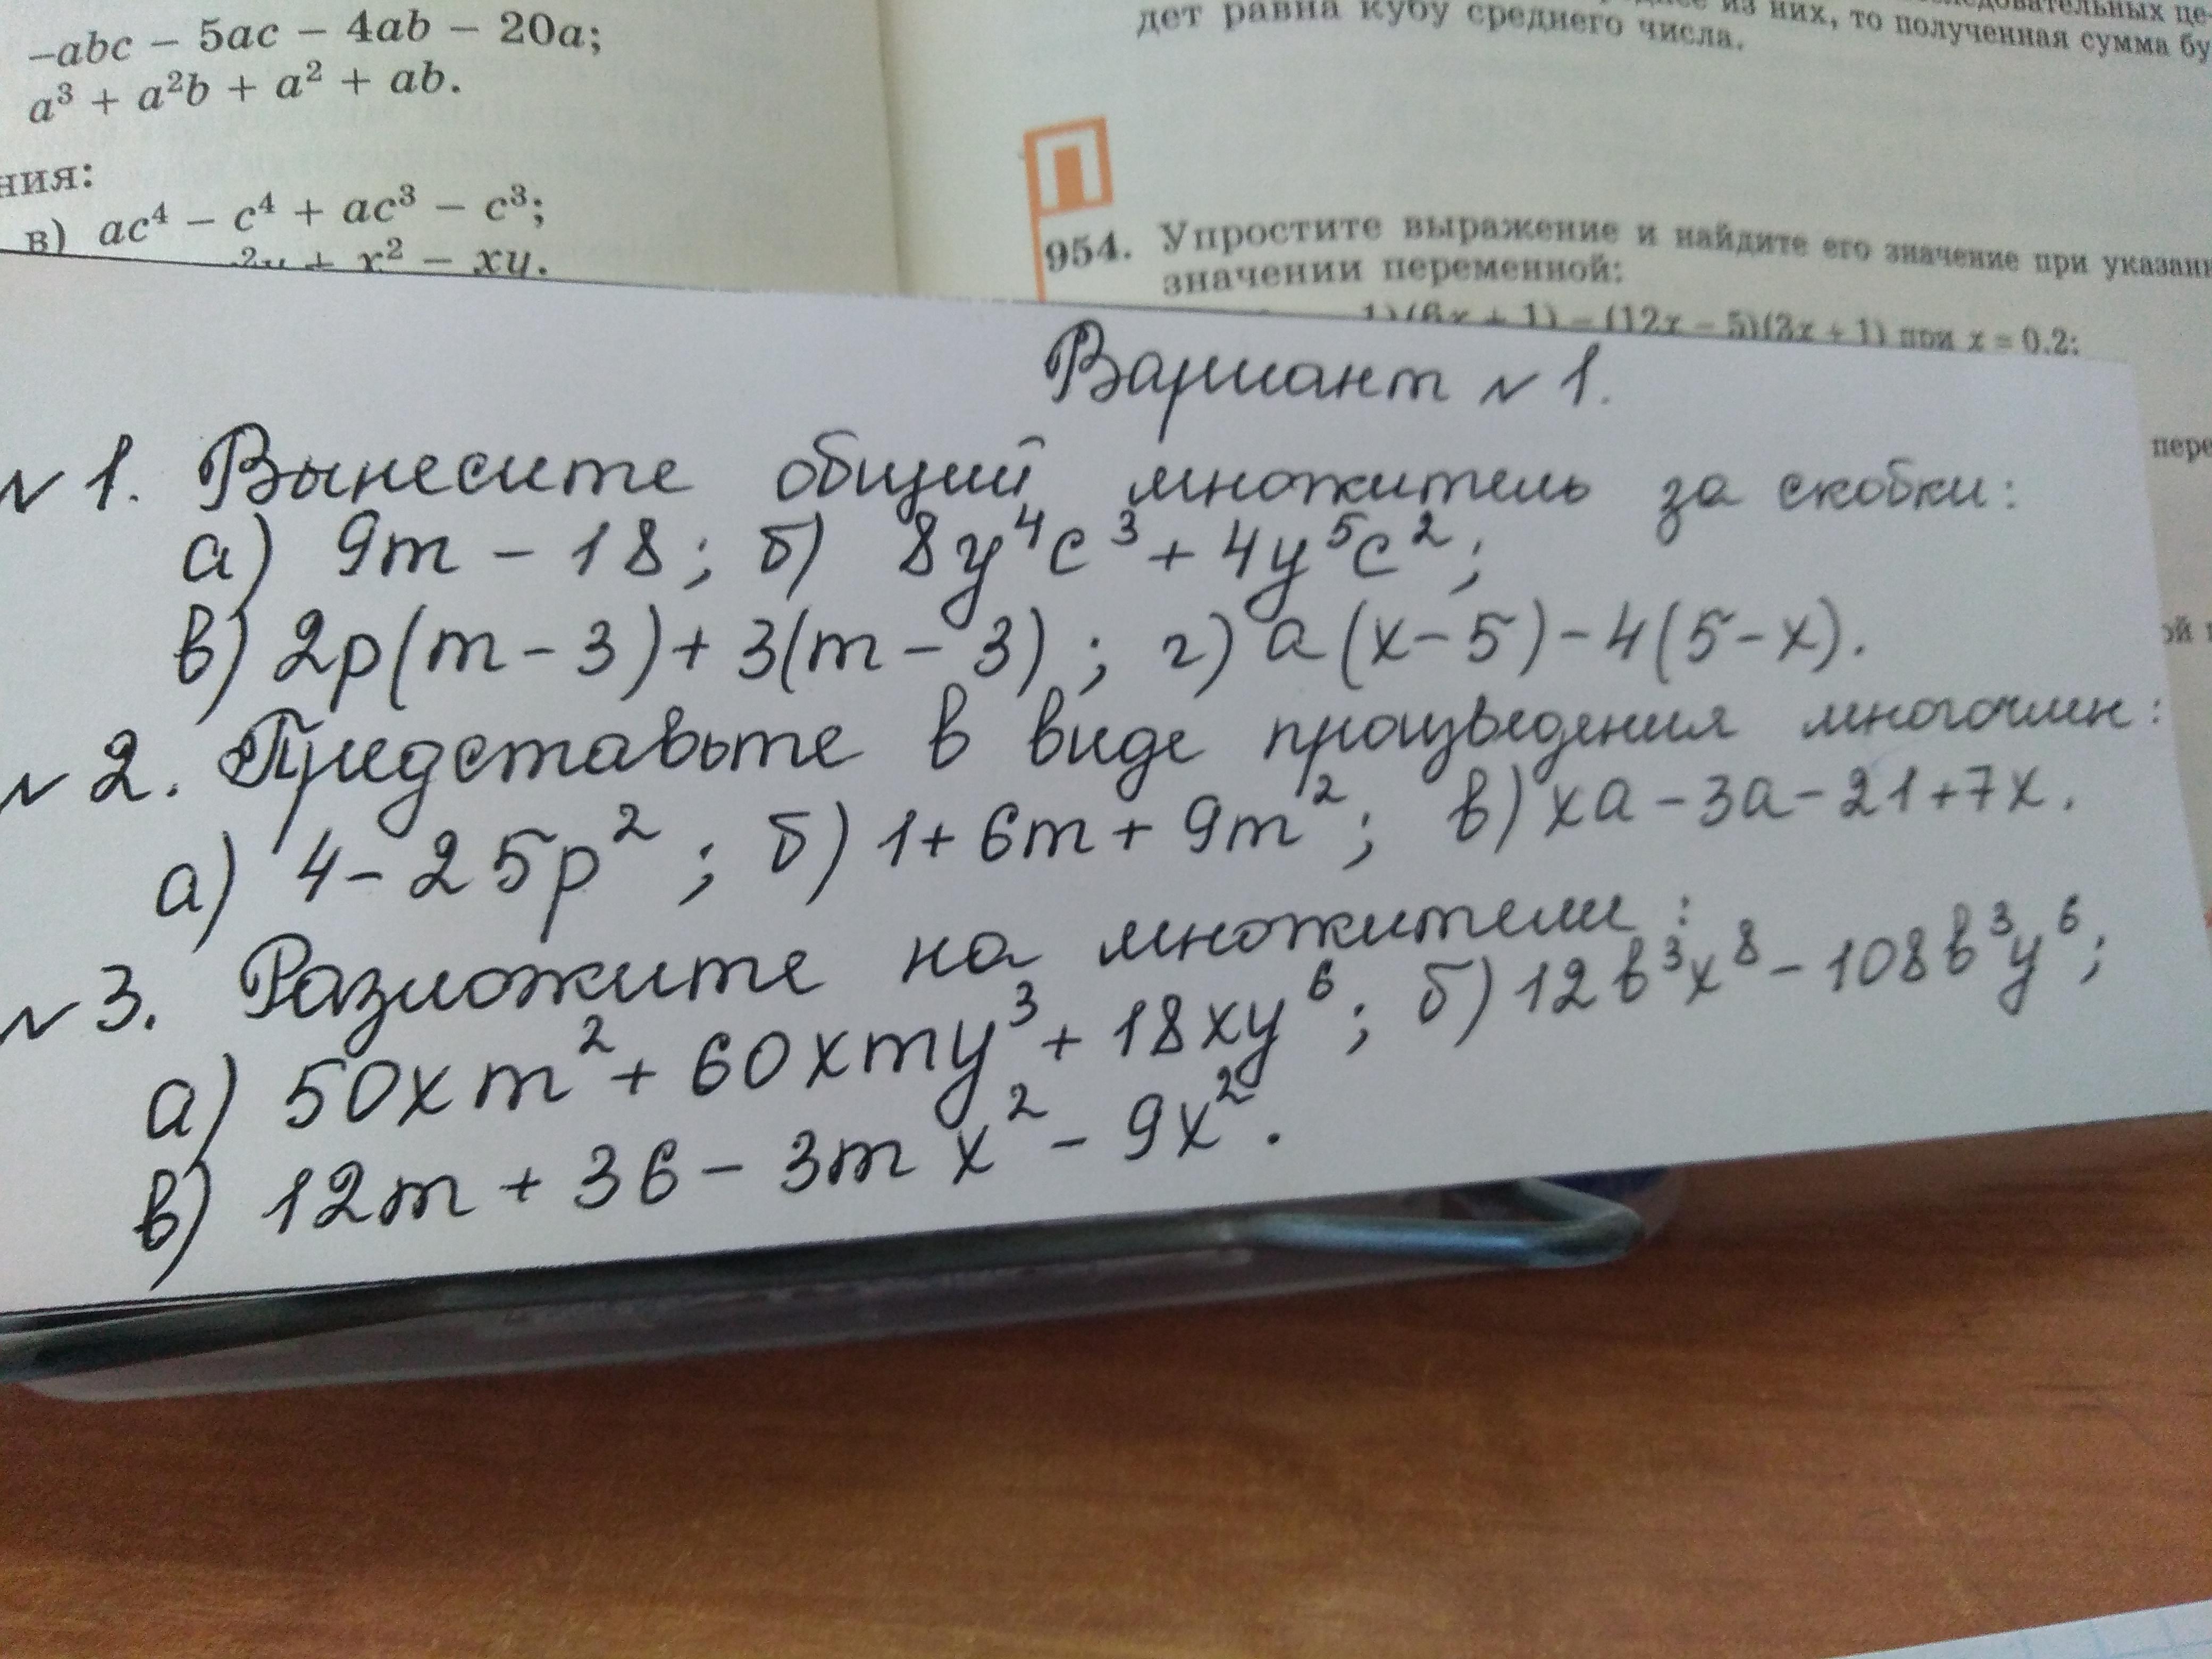 -abc - 5ac - 4ab - 20a;
a³ + a²b + a² + ab.
ния:
в) ac⁴ - c⁴ + ac³ - c³;
+ x² - xy.
из них, то полученная сумма бу
дет равна кубу среднего числа.
П
954. Упростите выражение и найдите его значение при указан
значении переменной:
1)(6x + 1) - (12x - 5)(3x + 1) при x = 0,2;
пере
ой
Вариант №1.
№1. Вынесите общий множитель за скобки:
а) 9m - 18; б) 8y⁴c³ + 4y⁵c²;
в) 2p(m - 3) + 3(m - 3); г) a(x - 5) - 4(5 - x).
№2. Представьте в виде произведения многочлен:
а) 4 - 25p²; б) 1 + 6m + 9m²; в) xa - 3a - 21 + 7x.
№3. Разложите на множители:
а) 50xm² + 60xmy³ + 18xy⁶; б) 12b³x⁸ - 108b³y⁶;
в) 12m + 36 - 3mx² - 9x².